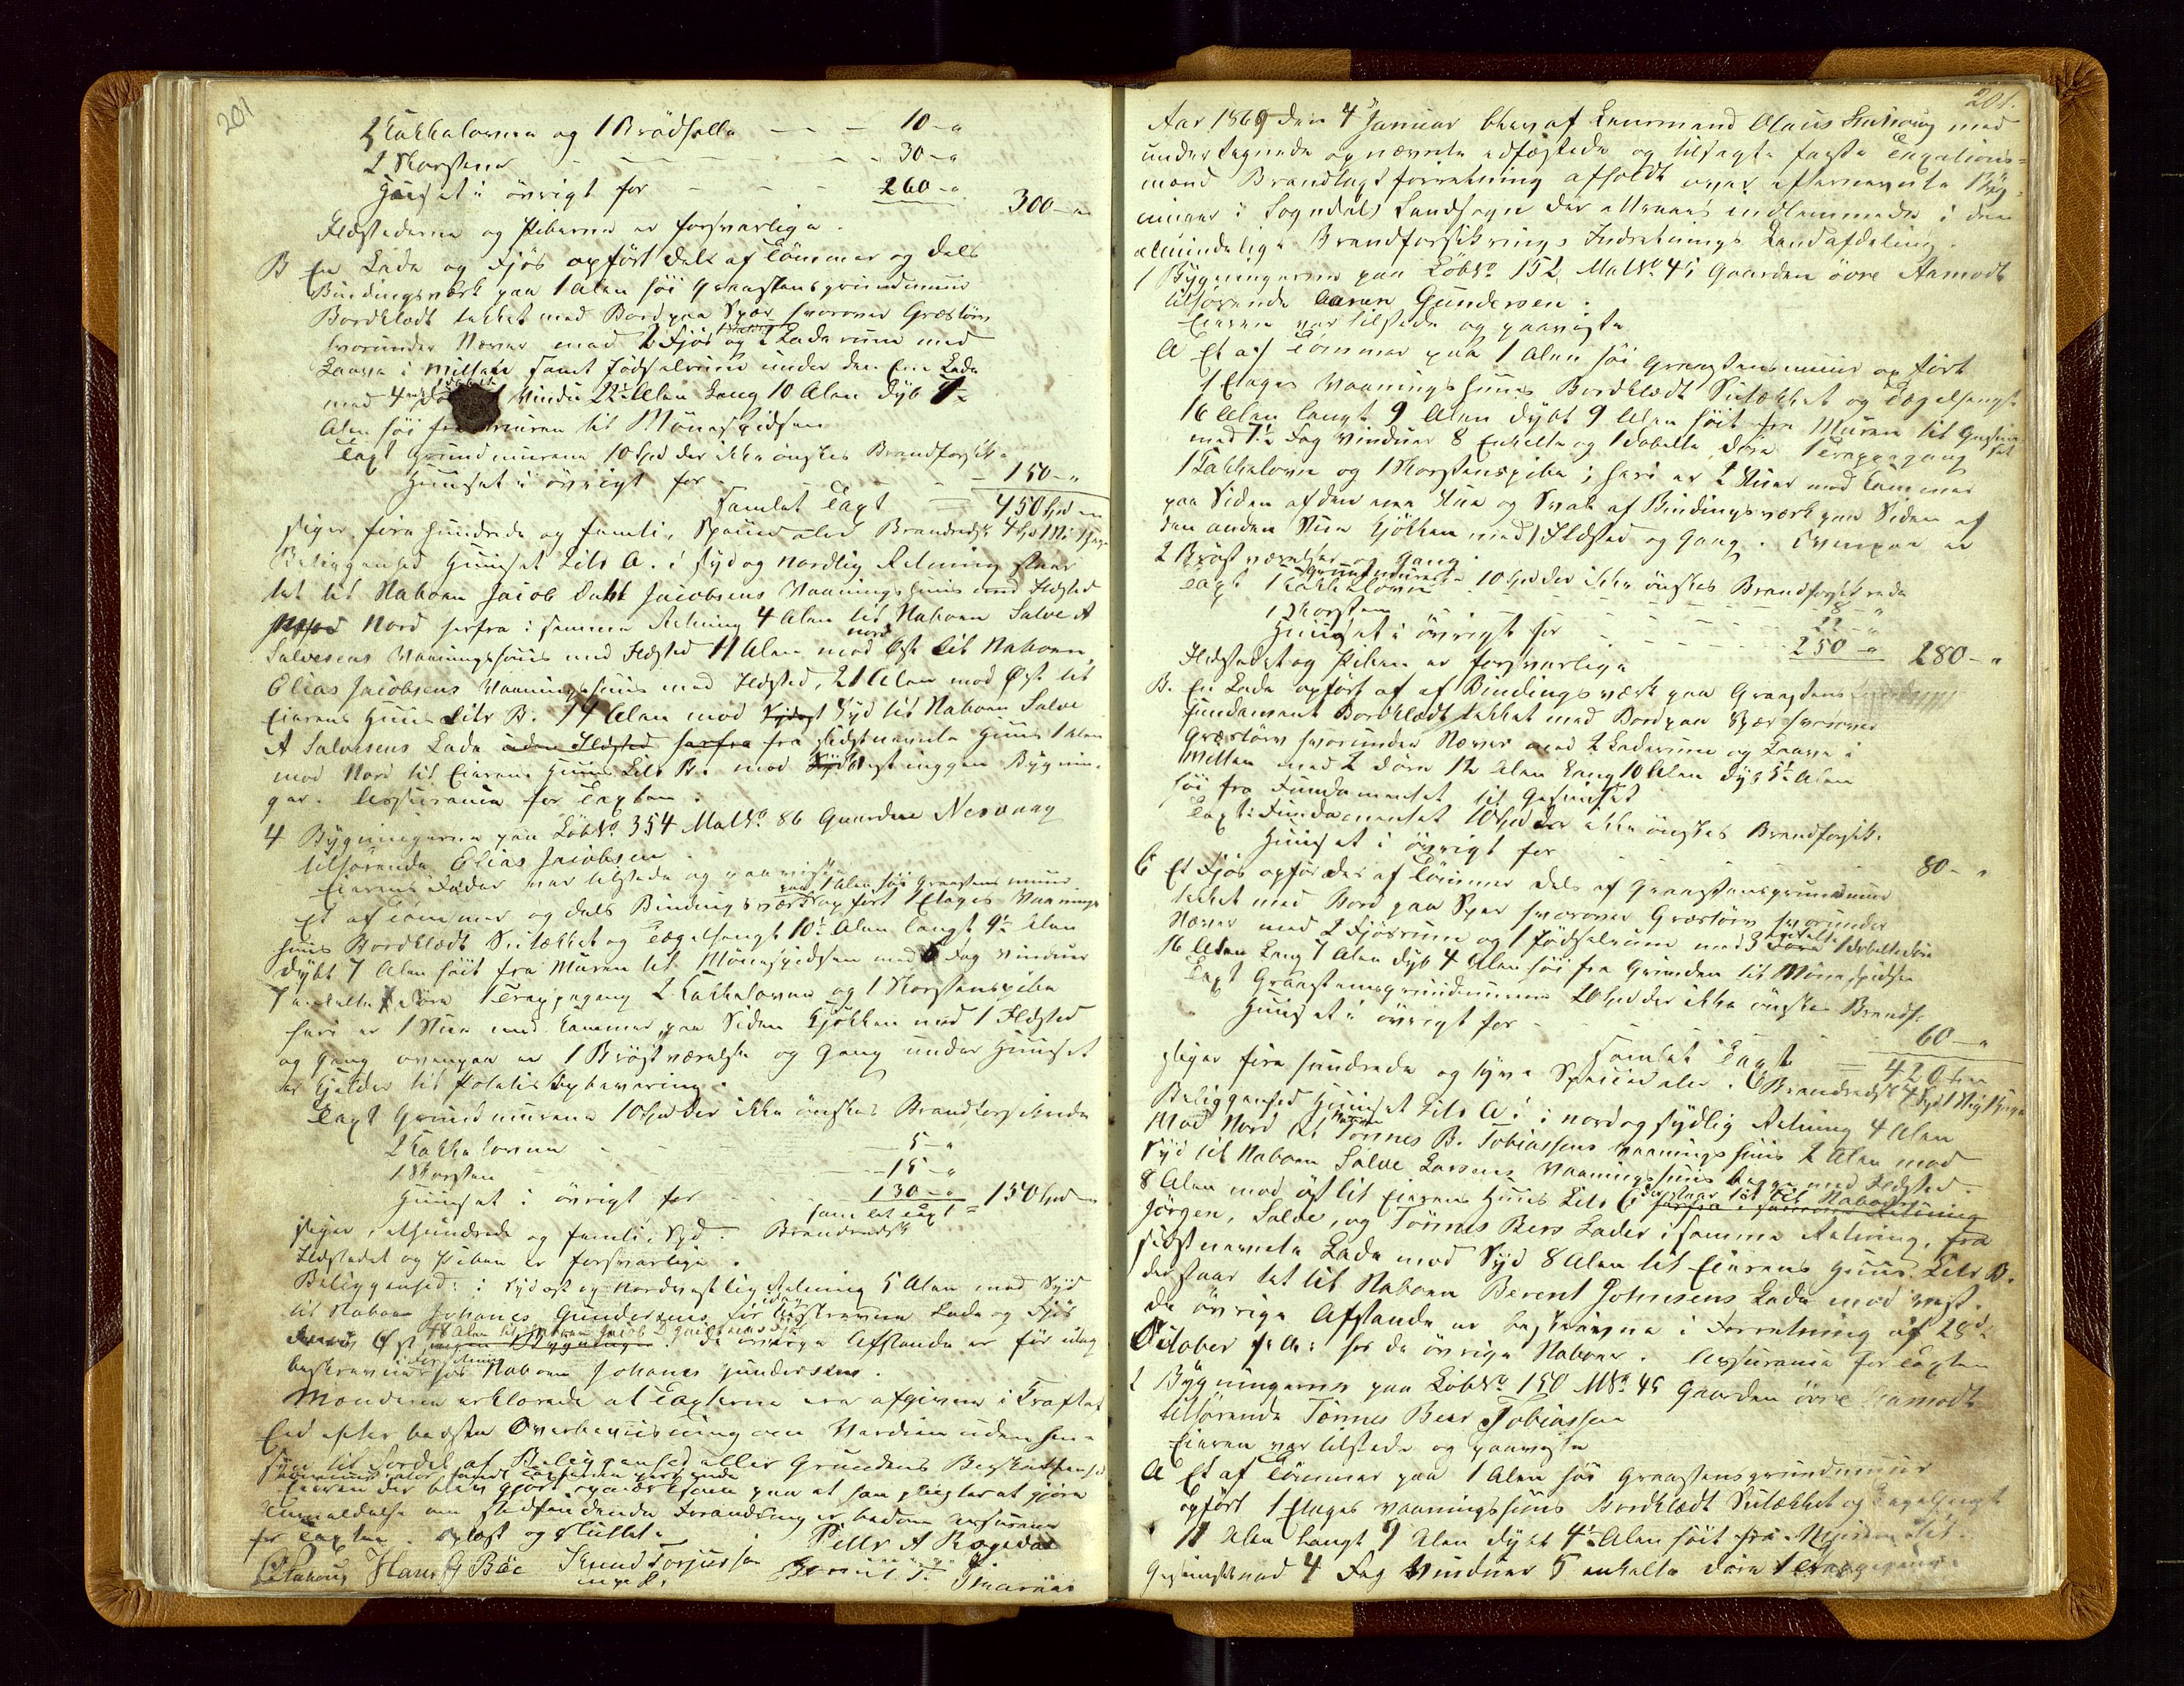 201
2 Kakkelovne og 1 Brødhelle - - - 10 - "
2 Skorstene - - - 30 - "
Huuset i övrigt for - - - 260 - " 300 - "
Ildstederne og Piberne er forsvarlige.
B En Lade og Fjös opfört dels af Tömmer og dels
Bindingsværk paa 1 Alen höi Graastensgrundmuur
Bordklædt tækket med Bord paa Spær hvorover Græstörv
hvorunder Næver med 2 Fjös og 2 Laderum med
Laave i Mitten samt Födselrum under den Ene Lade
med 4 Vindu 22½ Alen Lang 10 Alen dyb
Alen höi fra Muren til Mönespidsen
Taxt Grundmurene 10 Spd der ikke önskes Brandforsik.
Huuset i övrigt for - - 150 - "
Samlet Taxt - 450 Spd
siger fire hundrede og femti Speciedaler Brandredsk
Beliggenhed Huuset Litr A. i syd og nordlig Retning staar
tæt til Naboen Jacob Dahl Jacobsens Vaaningshuus med Ildsted
Nord herfra i samme Retning 4 Alen til Naboen Salve A
Salvesens Vaaningshuus med Ildsted 11 Alen mod nord Øst til Naboen
Elias Jacobsens Vaaningshuus med Ildsted, 21 Alen mod Øst til
Eierens Huus Litr B. 14 Alen mod Syd til Naboen Salve
A Salvesens Lade uden Ildsted herfra fra sidstnævnte Huus 1 Alen
mod Nord til Eierens Huus Litr B. mod Vest inggen Bygnin-
ger. Assurance for Taxten.
4 Bygningerne paa LöbNo. 354 MatNo. 86 Gaarden Nesvaag
tilhörende Elias Jacobsen.
Eierens Fader var tilstede og paaviste
paa 1 Alen höi Graastens muur
Et af Tömmer og dels Bindingsværk opfört 1 Etages Vaanings
huus Bordklædt Sutækket og Tægelhængt 10½ Alen langt 9½ Alen
dybt 7 Alen höit fra Muren til Mönespidsen med 6 Fag Vinduer
7 enkelte Döre 1 Trappegang 2 Kakkelovne og 1 Skorstenspibe
heri er 1 Stue med Kammer paa Siden Kjökken med 1 Ildsted
og Gang ovenpaa er 1 Bröstværelse og Gang under Huuset
er Kjelder til Potetes Opbevaring.
Taxt Grundmurene 10 Spd der ikke önskes Brandforsikrede
2 Kakkelovne - - - 5 - "
1 Skorsten - - - 15 - "
Huuset i övrigt for - - - 130 - " 150 Spd
samlet Taxt =
siger ethundrede og femti Spd. Brandredsk
Ildstedet og Piben er forsvarlige.
Beliggenhed: i Sydost og Nordvestlig Retning 5 Alen mod Syd
til Naboen Johanes Gundersens för idag beskrevne Lade og Fjös
Øst De övrige Afstande er för idag
beskrevne hos Naboen Johanes Gundersens.
Mændene erklærede at Taxterne ere afgivne i Kraft af
Eed efter bedste Overbeviisning om Værdien uden Hen-
syn til Fordel af Beliggenhed eller Grundens Beskaffenhed
Eieren der blev gjort opmærksom paa at han pligter at gjöre
Anmeldelse om stedfindende Forandring er bedre Assurance
for Taxten. Oplæst og Sluttet.
Hans G Bøe Knud Torjusen Peder A Rægedal

201.
Aar 1869 den 4 Januar blev af Lensmand Olaus Stuhoug med
undertegnede opnævnte edfæstede og tilsagte faste Taxations-
mænd Brandtaxtforretning afholdt over efternævnte Byg-
ninger i Sogndals Landsogn der attraaes indlemmede i den
almindelige Brandforsikrings Indretnings Landafdeling.
1 Bygningerne paa LöbNo. 152 MatNo. 45 Gaarden övre Aamodt
tilhörende Aanen Gundersen.
Eieren var tilstede og paaviste
A Et af Tömmer paa 1 Alen höi Graastensmuur opfört
1 Etages Vaaningshuus Bordklædt Sutækket og Tægelhængt
16 Alen langt 9 Alen dybt 9 Alen höit fra Muren til Gesimset
med 7½ Fag Vinduer 8 Enkelte og 1 dobelte Döre 1 Trappegang
1 Kakkelovn og 1 Skorstenspibe; heri er 2 Stuer med Kammer
paa Siden af den ene Stue og Sval af Bindingsværk paa Siden af
den anden Stue Kjökken med 1 Ildsted og Gang. Ovenpaa er
2 Bröstværelser og Gang.
Taxt Grundmurene 10 Spd der ikke önskes Brandforsikrede
1 Kakkelovn - - - 8 - "
1 Skorsten - - - 22 - "
Huuset i övrigt for - - - 250 - " 280 - "
Ildstedet og Piben er forsvarlige
B. En Lade opfört af af Bindingsværk paa Graastens
Fundament Bordklædt tækket med Bord paa Spær hvorover
Græstörv hvorunder Næver med 2 Laderum og Laave i
Mitten med 2 Döre 12 Alen Lang 10 Alen dyb 5½ Alen
höi fra Fundamentet til Gesimset
Taxt: Fundamentet 10 Spd der ikke önskes Brandforsik.
Huuset i övrigt for - - - 80 - "
C Et Fjös opfört dels af Tömmer dels af Graastensgrundmuur
tækket med Bord paa Spær hvorover Græstörv hvorunder
Næver med 2 Fjösrum og 1 Födselrum med 3 enkelte 1 dobelte Döre
16 Alen Lang 7 Alen dyb 4 Alen höi fra Grunden til Mönespidsen
Taxt Graastensgrundmurene 20 Spd der ikke önskes Brandf.
Huuset i övrigt for - - - 60 - "
Samlet Taxt - 420 Spd
siger fire hundrede og tyve Speciedaler. Brandredsk
Beliggenhed Huuset Litr A. i nord og sydlig Retning 4 Alen
mod Nord til Naboen Tönnes B. Tobiassens Vaaningshuus 2 Alen mod
Syd til Naboen Salve Larsens Vaaningshuus begge med Ildsted.
8 Alen mod öst til Eierens Huus Litr C der staar tæt til Naboerne
herfra i samme Retning
Jörgen, Salve, og Tönnes Bers Lader i samme Retning, fra
sidstnævnte Lade mod Syd 8 Alen til Eierens Huus Litr B.
der staar tæt til Naboen Berent Johnsens Lade mod vest.
De övrige Afstande er beskrevne i Forretning af 28de
October f. A. hos de övrige Naboer. Assurance for Taxten
2 Bygningerne paa LöbNo. 150 MNo. 45 Gaarden övre Aamodt
tilhörende Tönnes Beer Tobiassen
Eieren var tilstede og paaviste
A Et af Tömmer paa 1 Alen höi Graastensgrundmuur
opfört 1 Etages Vaaningshuus Bordklædt Sutækket og Tægelhængt
11 Alen Langt 9 Alen dybt 4½ Alen höit fra Muren til
Gesimset med 4 Fag Vinduer 5 enkelte Döre 1 Trappegang